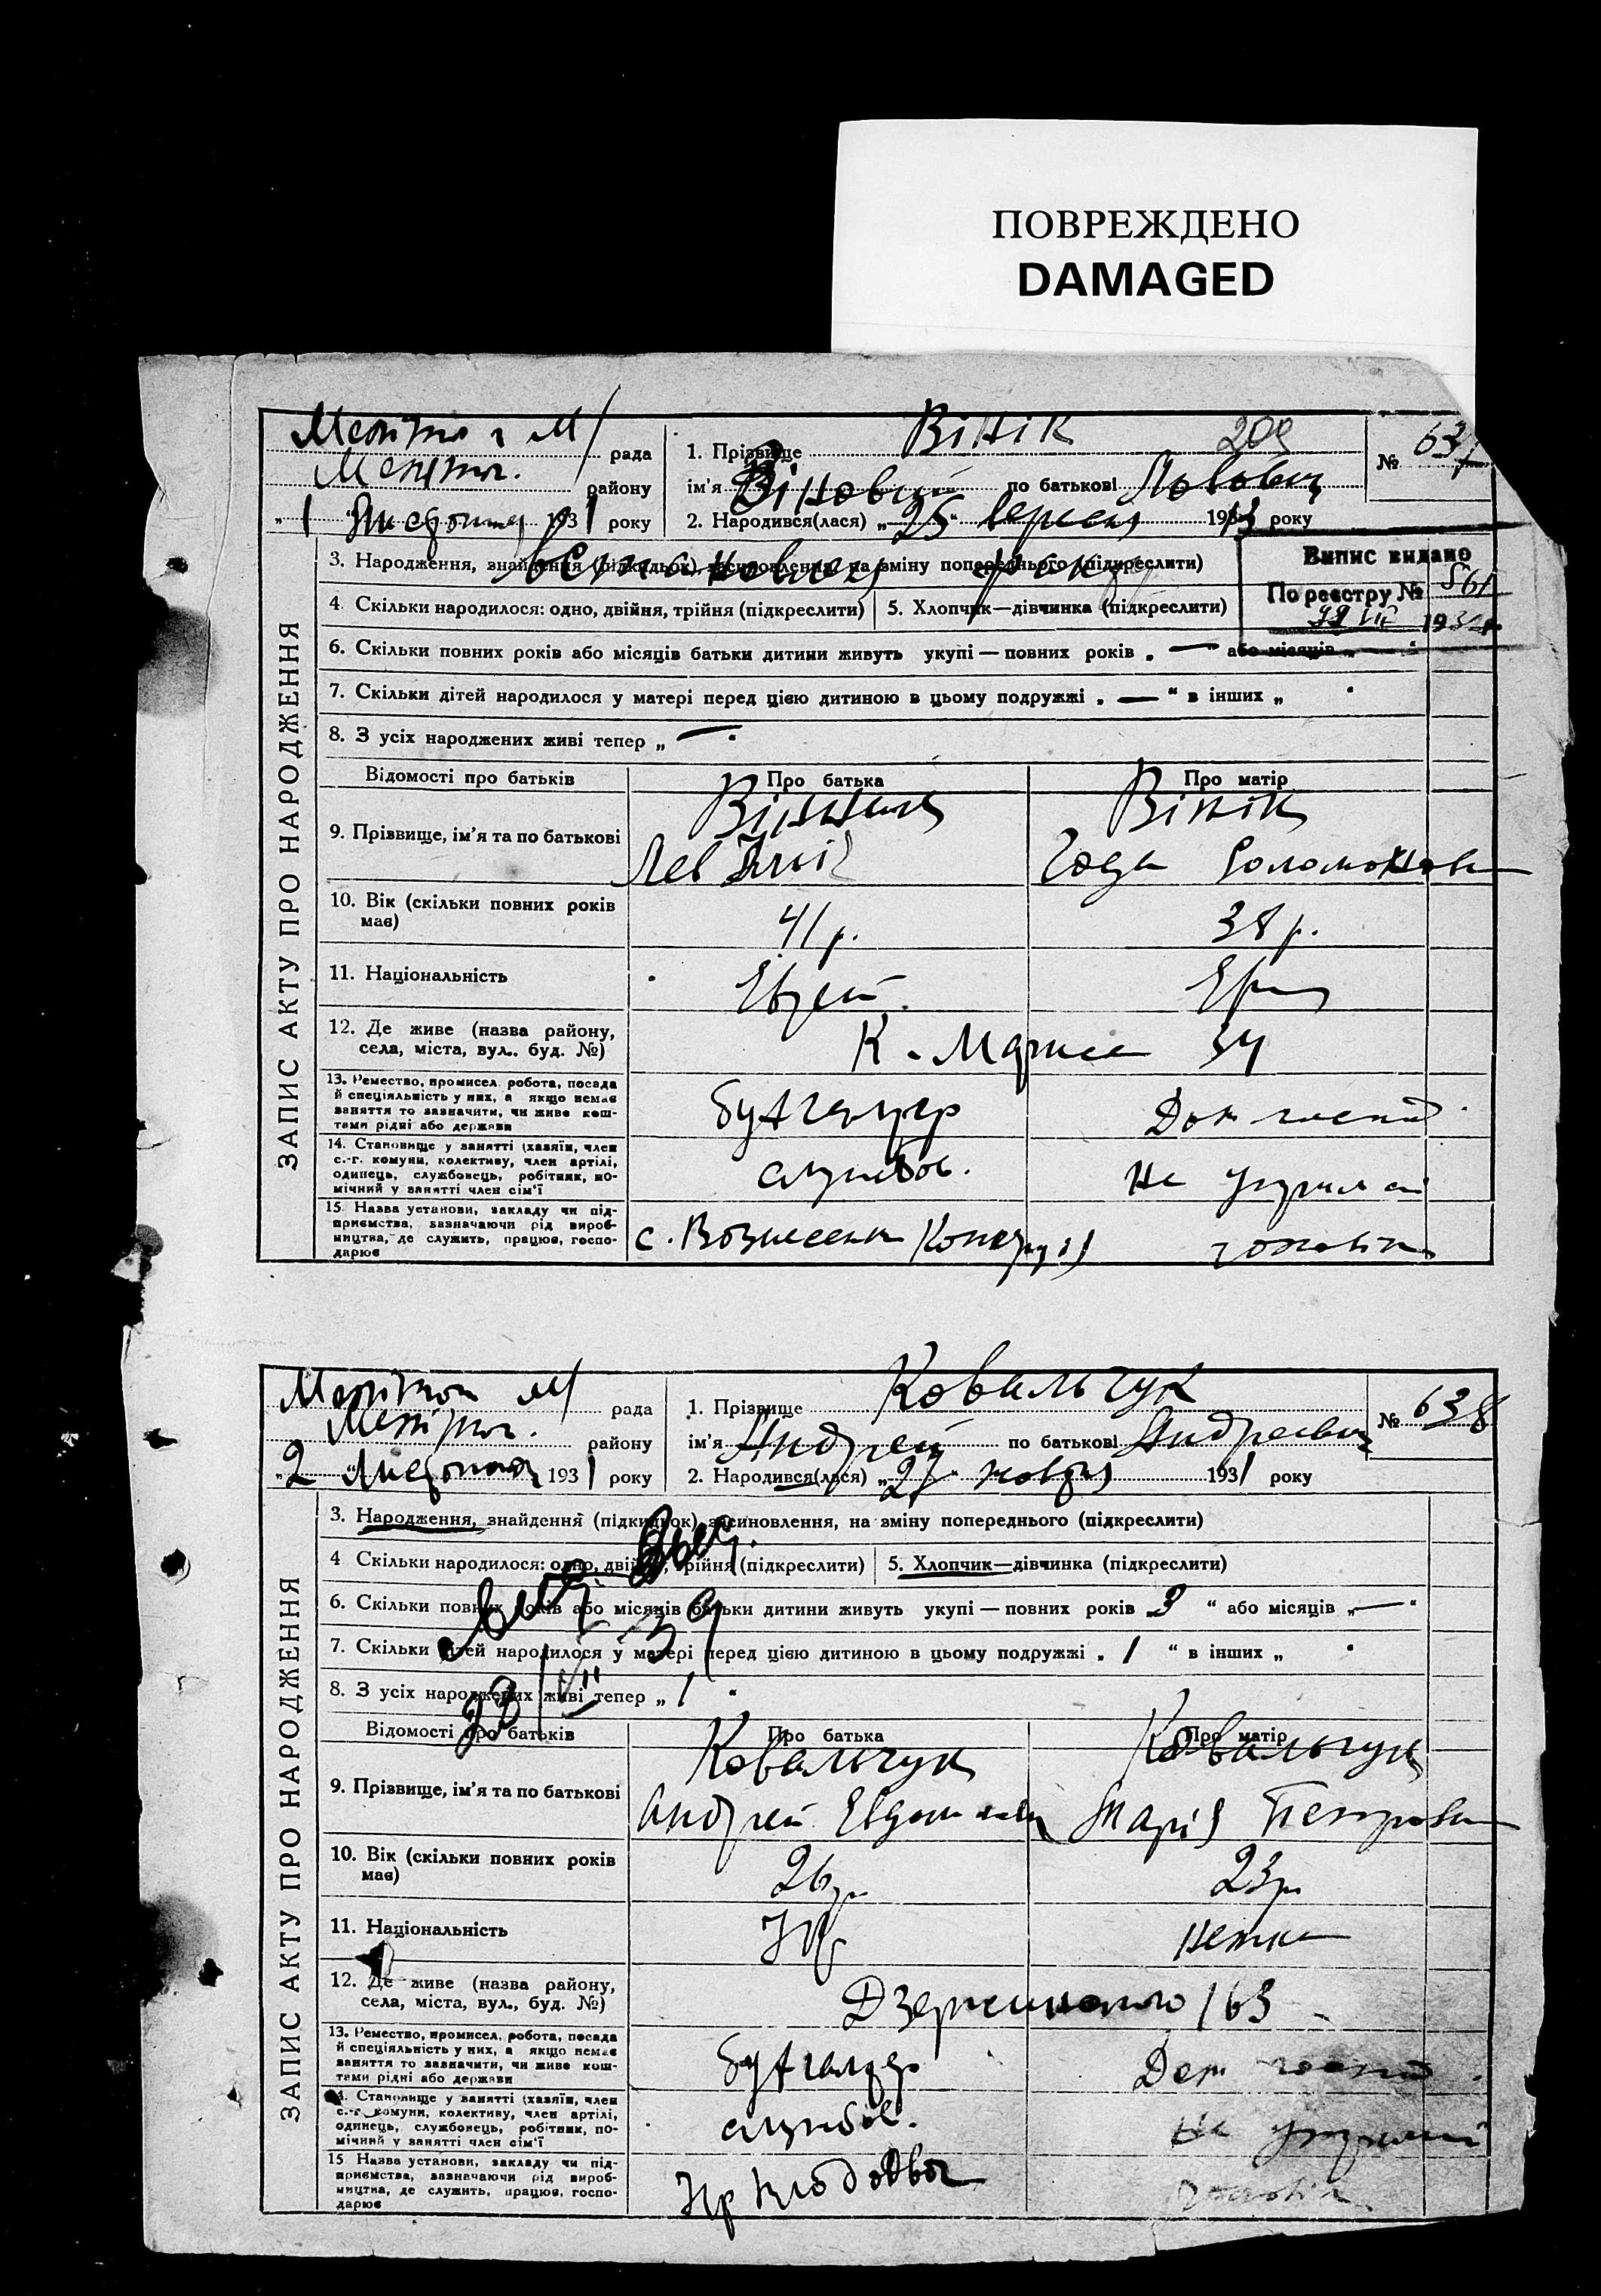 ПОВРЕЖДЕНО
DAMAGED
ЗАПИС АКТУ ПРО НАРОДЖЕННЯ
рада
району
1 1931 року
1. Прізвище Вінік 209
ім'я по батькові
2. Народився(лася) „25" вересня 1913 року
№ 637
3. Народження, знайдення (підкидьок), засиновлення, на зміну попереднього (підкреслити)
4 Скільки народилося: одно, двійня, трійня (підкреслити) 5. Хлопчик—дівчинка (підкреслити)
Випис видано
По реєстру № 561
193
6. Скільки повних років або місяців батьки дитини живуть укупі — повних років „ — " або місяців „ — "
7. Скільки дітей народилося у матері перед цією дитиною в цьому подружжі „ — " в інших „ "
8. З усіх народжених живі тепер „ — "
Відомості про батьків Про батька Про матір
9. Прізвище, ім'я та по батькові
Вінік
Лев
10. Вік (скільки повних років має) 41 р. 38 р.
11. Національність Еврей
12. Де живе (назва району, села, міста, вул., буд. №) К. Маркса 34
13. Ремество, промисел, робота, посада й спеціяльність у них, а якщо немає заняття то зазначити, чи живе коштами рідні або держави бухгалтер Дом господ.
14. Становище у занятті (хазяїн, член с.-г. комуни, колективу, член артілі, одинець, службовець, робітник, помічний у занятті член сім'ї службов. На утриман
15. Назва установи, закладу чи підприємства, зазначаючи рід виробництва, де служить, працює, господарює с. Вознесенка чоловіка
ЗАПИС АКТУ ПРО НАРОДЖЕННЯ
рада
району
2 Листопада 1931 року
1. Прізвище Ковальчук
ім'я Андрей по батькові Андреевич
2. Народився(лася) „27" жовтня 1931 року
№ 638
3. Народження, знайдення (підкидьок), засиновлення, на зміну попереднього (підкреслити)
4 Скільки народилося: одно, двійня, трійня (підкреслити) 5. Хлопчик—дівчинка (підкреслити)
6. Скільки повних років або місяців батьки дитини живуть укупі — повних років „3 " або місяців „ — "
7. Скільки дітей народилося у матері перед цією дитиною в цьому подружжі „ 1 " в інших „ "
8. З усіх народжених живі тепер „ 1 "
Відомості про батьків Про батька Про матір
9. Прізвище, ім'я та по батькові
Ковальчук Ковальчук
Андрей Марія Петровна
10. Вік (скільки повних років має) 26 р. 23 р.
11. Національність Укр немка
12. Де живе (назва району, села, міста, вул., буд. №) Дзержинского 163
13. Ремество, промисел, робота, посада й спеціяльність у них, а якщо немає заняття то зазначити, чи живе коштами рідні або держави бухгалтер Дом господ.
14. Становище у занятті (хазяїн, член с.-г. комуни, колективу, член артілі, одинець, службовець, робітник, помічний у занятті член сім'ї службов. На утриманні
15 Назва установи, закладу чи підприємства, зазначаючи рід виробництва, де служить, працює, господарює чоловіка